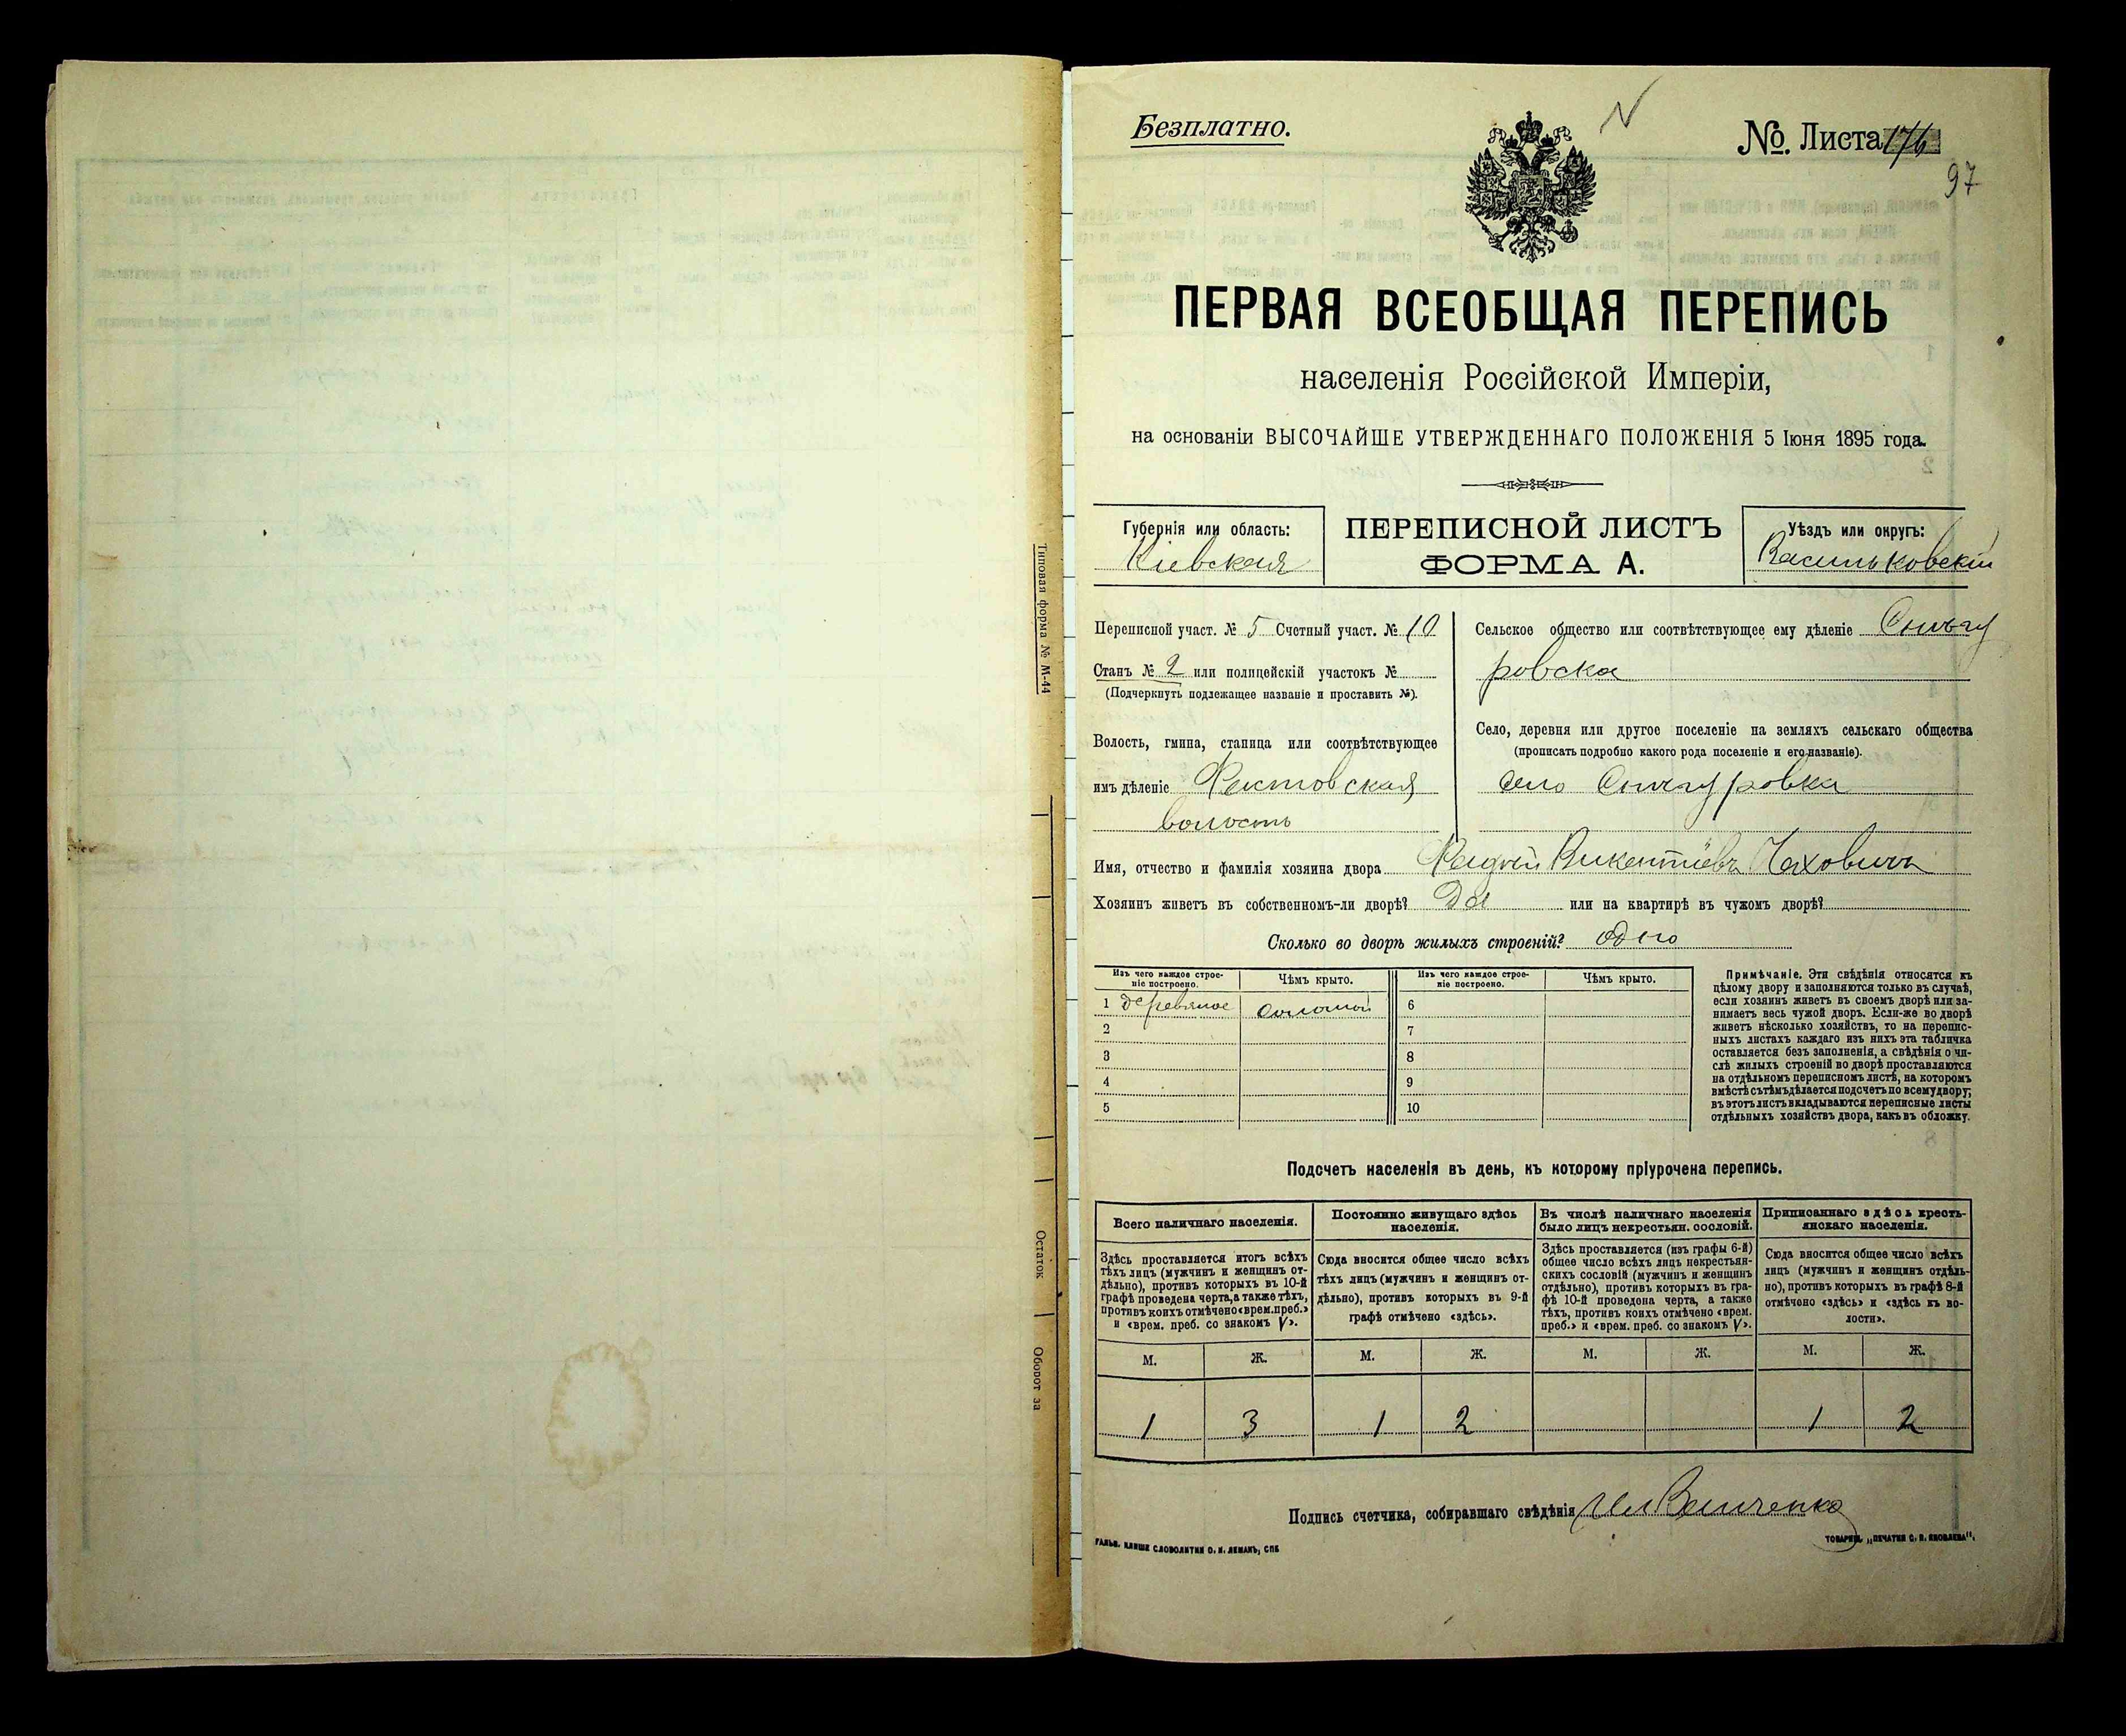 Безплатно.
№ Листа 176
97
ПЕРВАЯ ВСЕОБЩАЯ ПЕРЕПИСЬ
населенія Россійской Имперіи,
на основаніи ВЫСОЧАЙШЕ УТВЕРЖДЕННАГО ПОЛОЖЕНІЯ 5 Іюня 1895 года.
Губернія или область:
Кіевская
ПЕРЕПИСНОЙ ЛИСТЪ
ФОРМА А.
Уѣздъ или округъ:
Васильковскій
Переписной участ. № 5 Счетный участ. № 10
Станъ № 2 или полицейскій участокъ №
(Подчеркнуть подлежащее названіе и проставить №).
Волость, гмина, станица или соотвѣтствующее
имъ дѣленіе Фастовская
волость
Сельское общество или соотвѣтствующее ему дѣленіе Снѣгу
ровска
Село, деревня или другое поселеніе на земляхъ сельскаго общества
(прописать подробно какого рода поселеніе и его названіе).
село Снѣгуровка
Имя, отчество и фамилія хозяина двора Викентіевъ
Хозяинъ живетъ въ собственномъ-ли дворѣ? Да или на квартирѣ въ чужомъ дворѣ?
Сколько во дворѣ жилыхъ строеній? одно
Изъ чего каждое строе-
ніе построено.
Чѣмъ крыто.
Изъ чего каждое строе-
ніе построено.
Чѣмъ крыто.
1 деревяное соломой 6
2 7
3 8
4 9
5 10
Примѣчаніе. Эти свѣдѣнія относятся къ
цѣлому двору и заполняются только въ случаѣ,
если хозяинъ живетъ въ своемъ дворѣ или за-
нимаетъ весь чужой дворъ. Если-же во дворѣ
живетъ нѣсколько хозяйствъ, то на перепис-
ныхъ листахъ каждаго изъ нихъ эта табличка
оставляется безъ заполненія, а свѣдѣнія о чи-
слѣ жилыхъ строеній во дворѣ проставляются
на отдѣльномъ переписномъ листѣ, на которомъ
вмѣстѣ съ тѣмъ дѣлается подсчетъ по всему двору;
въ этотъ листъ вкладываются переписные листы
отдѣльныхъ хозяйствъ двора, какъ въ обложку.
Подсчетъ населенія въ день, къ которому пріурочена перепись.
Всего наличнаго населенія.
Здѣсь проставляется итогъ всѣхъ
тѣхъ лицъ (мужчинъ и женщинъ от-
дѣльно), противъ которыхъ въ 10-й
графѣ проведена черта, а также тѣхъ,
противъ коихъ отмѣчено «врем. преб.»
и «врем. преб. со знакомъ V».
Постоянно живущаго здѣсь
населенія.
Сюда вносится общее число всѣхъ
тѣхъ лицъ (мужчинъ и женщинъ от-
дѣльно), противъ которыхъ въ 9-й
графѣ отмѣчено «здѣсь».
Въ числѣ наличнаго населенія
было лицъ некрестьян. сословій.
Здѣсь проставляется (изъ графы 6-й)
общее число всѣхъ лицъ некрестьян-
скихъ сословій (мужчинъ и женщинъ
отдѣльно), противъ которыхъ въ гра-
фѣ 10-й проведена черта, а также
тѣхъ, противъ коихъ отмѣчено «врем.
преб.» и «врем. преб. со знакомъ V».
Приписаннаго здѣсь кресть-
янскаго населенія.
Сюда вносится общее число всѣхъ
лицъ (мужчинъ и женщинъ отдѣль-
но), противъ которыхъ въ графѣ 8-й
отмѣчено «здѣсь» и «здѣсь къ во-
лости».
М. Ж. М. Ж. М. Ж. М. Ж.
1 3 1 2 1 2
Подпись счетчика, собиравшаго свѣдѣнія
ГАЛЬВ. КЛИШЕ СЛОВОЛИТНИ О. И. ЛЕМАНЪ, СПБ
ТОВАРИЩ. „ПЕЧАТНЯ С. П. ЯКОВЛЕВА".
Типовая форма № М-44
Остаток
Оборот за